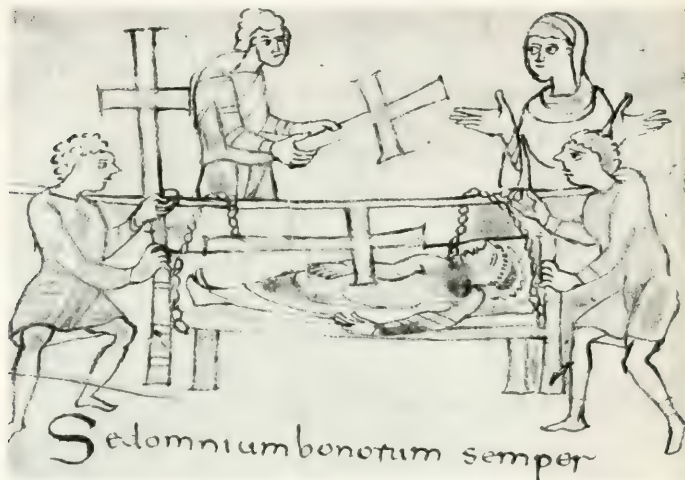 Sedomniumbonorum semper